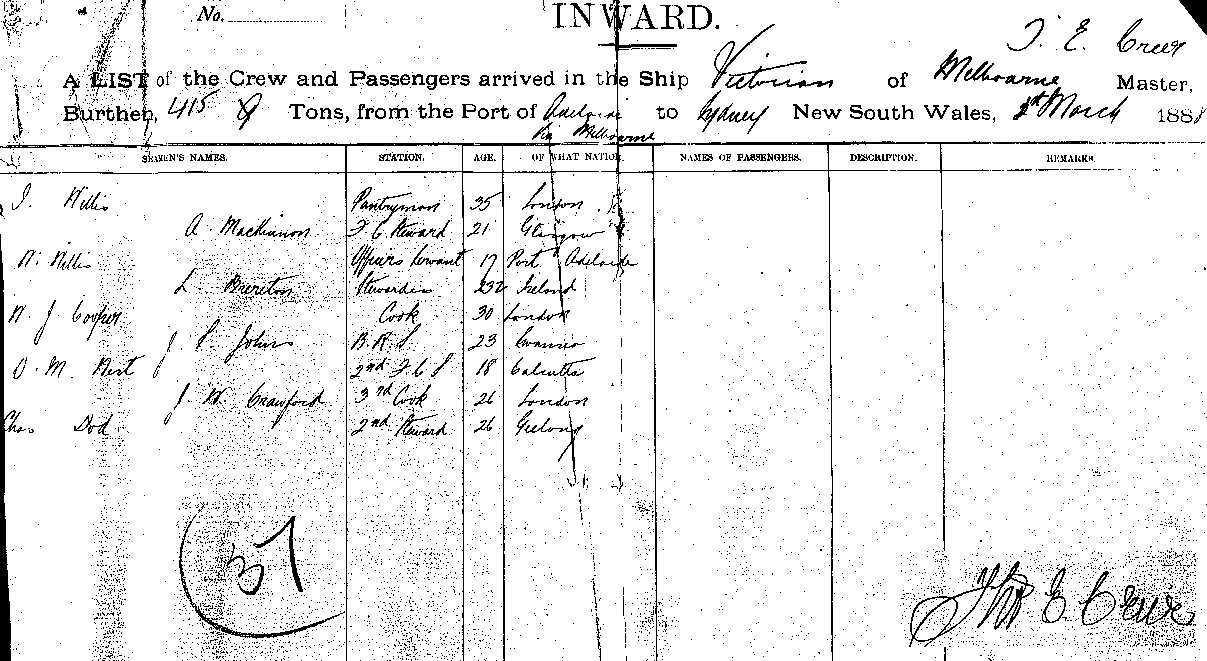 No.
INWARD.
T. E. Creer
A LIST of the Crew and Passengers arrived in the Ship Victorian of Melbourne Master,
Burthen, 415 Tons, from the Port of Adelaide to Sydney New South Wales, March 188
Via Melbourne
SEAMEN'S NAMES. STATION. AGE. OF WHAT NATION. NAMES OF PASSENGERS. DESCRIPTION. REMARKS.
J. Willis Pantryman 35 London
A. Mackinnon F C Steward 21 Glasgow
W. Willis Officers Servant 17 Port Adelaide
L Brereton Stewardess Ireland
W. J Cooper Cook 30 London
J. S. Johns B.R.S 23 Swansea
O. M. Bert 2nd F C S 18 Calcutta
J. W. Crawford 3rd Cook 26 London
Chas Dod 2nd Steward 26 Geelong
37
Thos E. Creer